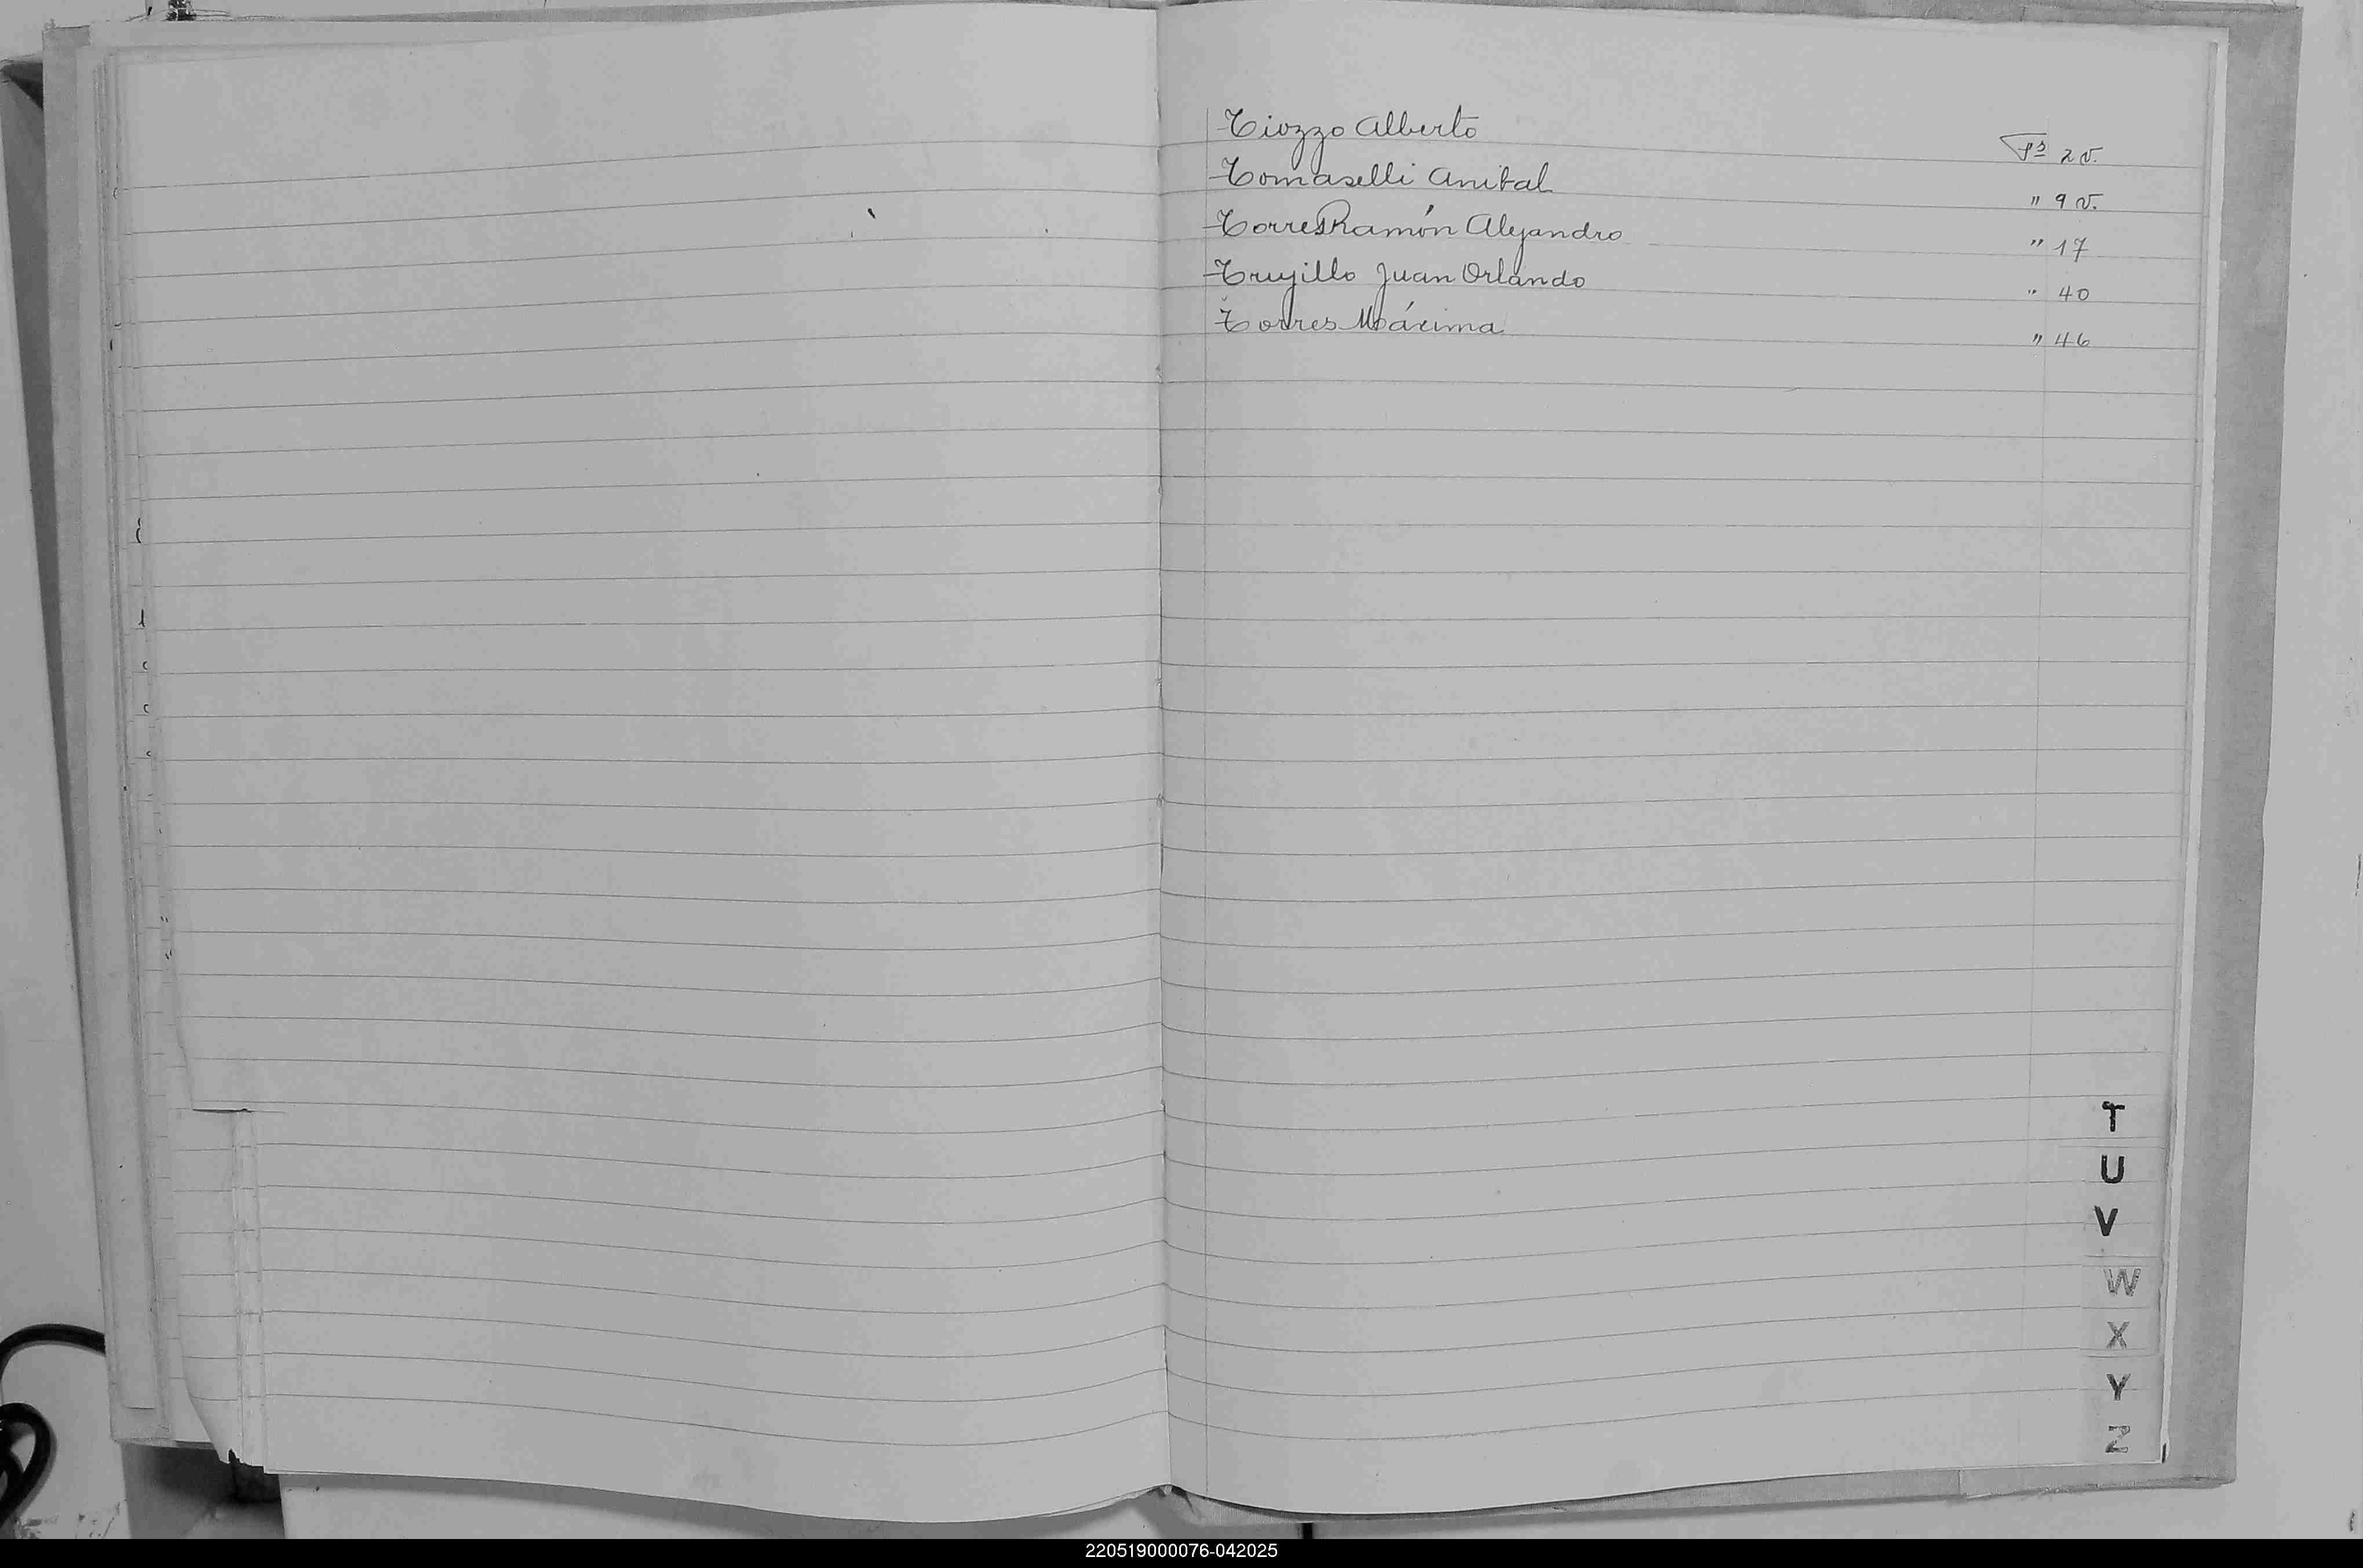 Tiozzo Alberto Fº 2 v.
Tomaselli Anibal " 9 v.
Torres Ramón Alejandro " 17
Trujillo Juan Orlando " 40
Torres Máxima " 46
T
U
V
W
X
Y
Z
220519000076-042025